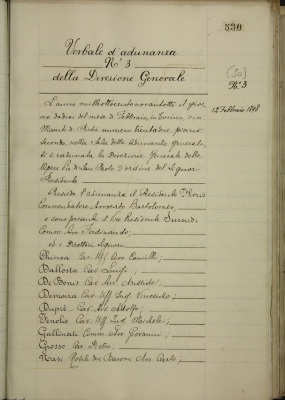 530
Verbale d'adunanza
N.° 3
della Direzione Generale
(3a)
N.° 3
12 Febbraio 1898
L'anno milleottocentonovantotto il gior
no dodici del mese di Febbraio, in Torino, via
Monte di Pietà numero trentadue, piano
secondo, nella Sala delle Adunanze generali
si è radunata la Direzione Generale delle
Opere Pie di San Paolo d'ordine del Signor
Presidente
Presiede l'adunanza il Presidente
Commendatore Avvocato Bartolomeo,
e sono presenti il Vice Presidente
Comm. Avv. Ferdinando;
ed i Direttori Signori
Chiesa Cav. Uff. Avv. Camillo;
Ballosta Cav. Luigi;
De Bonis Cav. Avv. Andrea;
Demorra Cav. Uff. Ing. Vincenzo;
Dupré Cav. Avv. Adolfo;
Fenolio Cav. Uff. Ing. Michele;
Gallinati Comm. Avv. Giovanni;
Grosso Cav. Pietro;
Nasi Nobile dei Baroni Avv. Carlo;